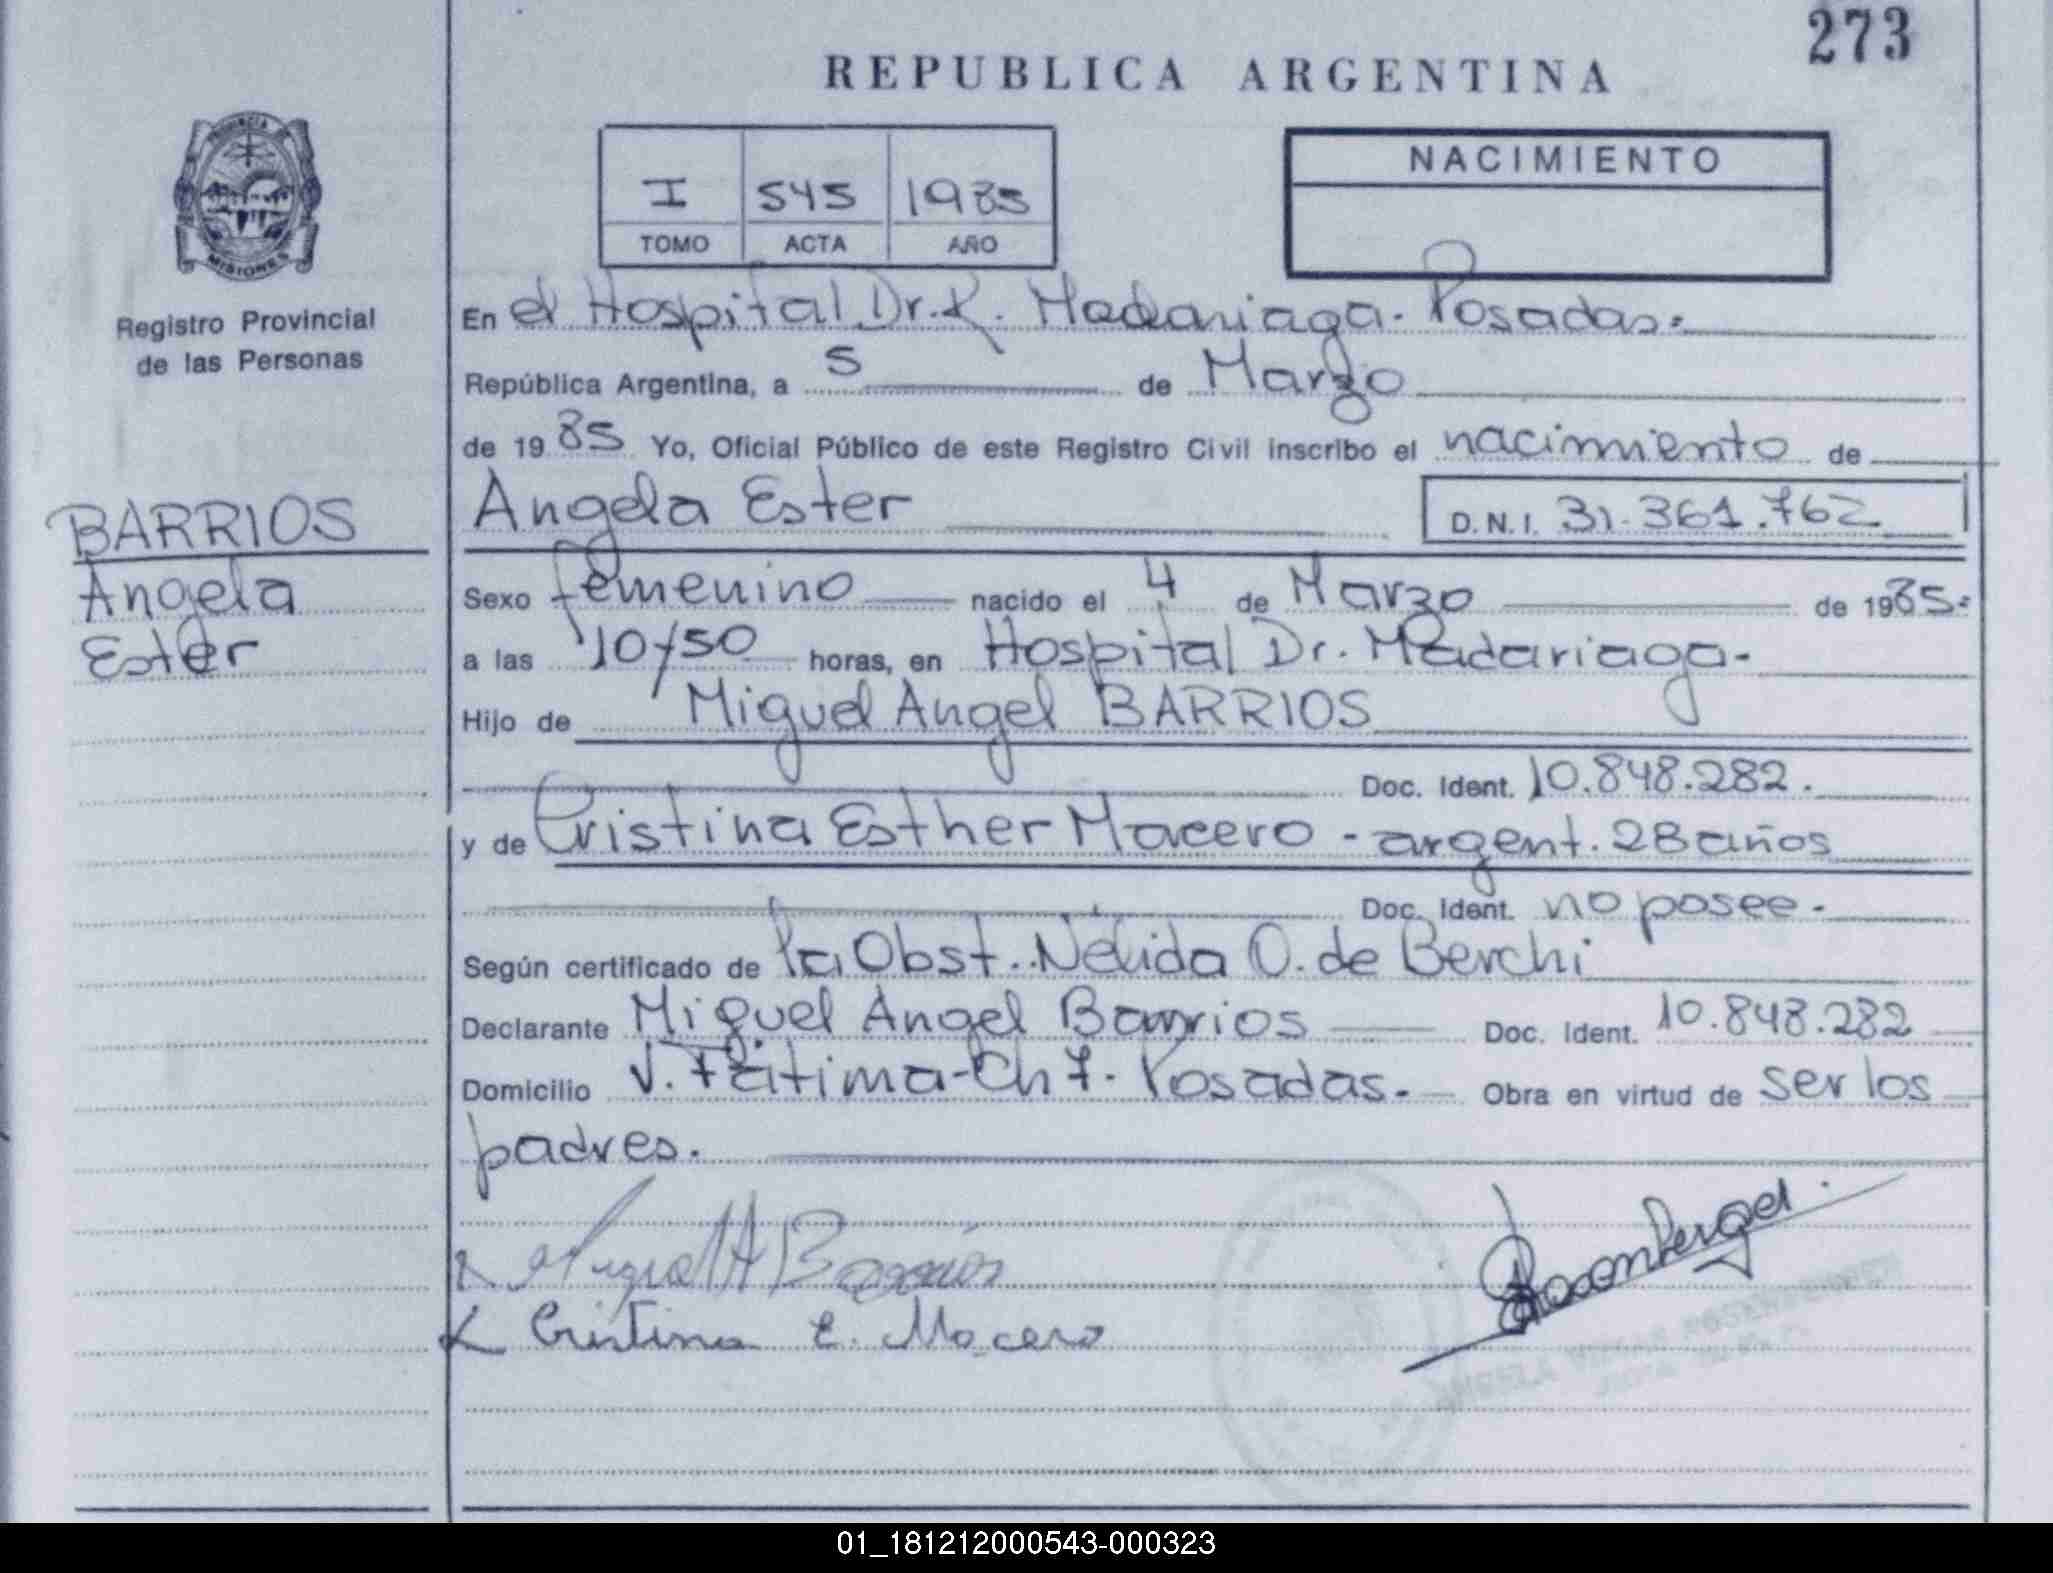 273
REPUBLICA ARGENTINA
PROVINCIA DE
MISIONES
Registro Provincial
de las Personas
I 545 1985
TOMO ACTA AÑO
NACIMIENTO
En el Hospital Dr. R. Madariaga. Posadas.
República Argentina, a 5 de Marzo
de 1985 Yo, Oficial Público de este Registro Civil inscribo el nacimiento de
BARRIOS
Angela
Ester
Angela Ester D.N.I. 31.361.762
Sexo femenino nacido el 4 de Marzo de 1985.
a las 10/50 horas, en Hospital Dr. Madariaga.
Hijo de Miguel Angel BARRIOS
Doc. Ident. 10.848.282.
y de Cristina Esther Macero - argent. 28 años
Doc. Ident. no posee.
Según certificado de la Obst. Nélida O. de Berchi
Declarante Miguel Angel Barrios Doc. Ident. 10.848.282
Domicilio V. Fátima - Ch 7. Posadas. Obra en virtud de ser los
padres.
Miguel A Barrios
Cristina E. Macero
01_181212000543-000323